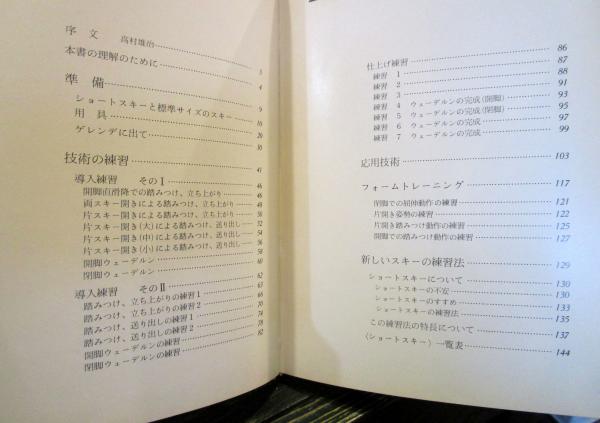 序 文 高村雄治……3
本書の理解のために……4
準 備……9
ショートスキーと標準サイズのスキー……10
用 具……20
ゲレンデに出て……30
技術の練習……41
導入練習 その I……46
開脚直滑降での踏みつけ、立ち上がり……46
両スキー開きによる踏みつけ、立ち上がり……48
片スキー開きによる踏みつけ、立ち上がり……50
片スキー開き(大)による踏みつけ、送り出し……52
片スキー開き(中)による踏みつけ、送り出し……54
片スキー開き(小)による踏みつけ、送り出し……56
開脚ウェーデルン……58
閉脚ウェーデルン
導入練習 その II……62
踏みつけ、立ち上がりの練習 1
踏みつけ、立ち上がりの練習 2……66
踏みつけ、送り出しの練習 1……70
踏みつけ、送り出しの練習 2……74
開脚ウェーデルンの練習……78
閉脚ウェーデルンの練習……82
仕上げ練習……86
練習 1……87
練習 2……88
練習 3……91
練習 4 ウェーデルンの完成(開脚)……93
練習 5 ウェーデルンの完成(閉脚)……95
練習 6 ウェーデルンの完成……97
練習 7 ウェーデルンの完成……99
応用技術……103
フォームトレーニング……117
閉脚での屈伸動作の練習……121
片開き姿勢の練習……122
片開き踏みつけ動作の練習……125
開脚での踏みつけ動作の練習……127
新しいスキーの練習法……129
ショートスキーについて……130
ショートスキーの不安……130
ショートスキーのすすめ……133
ショートスキーの練習法……135
この練習法の特長について……137
〈ショートスキー〉一覧表……144